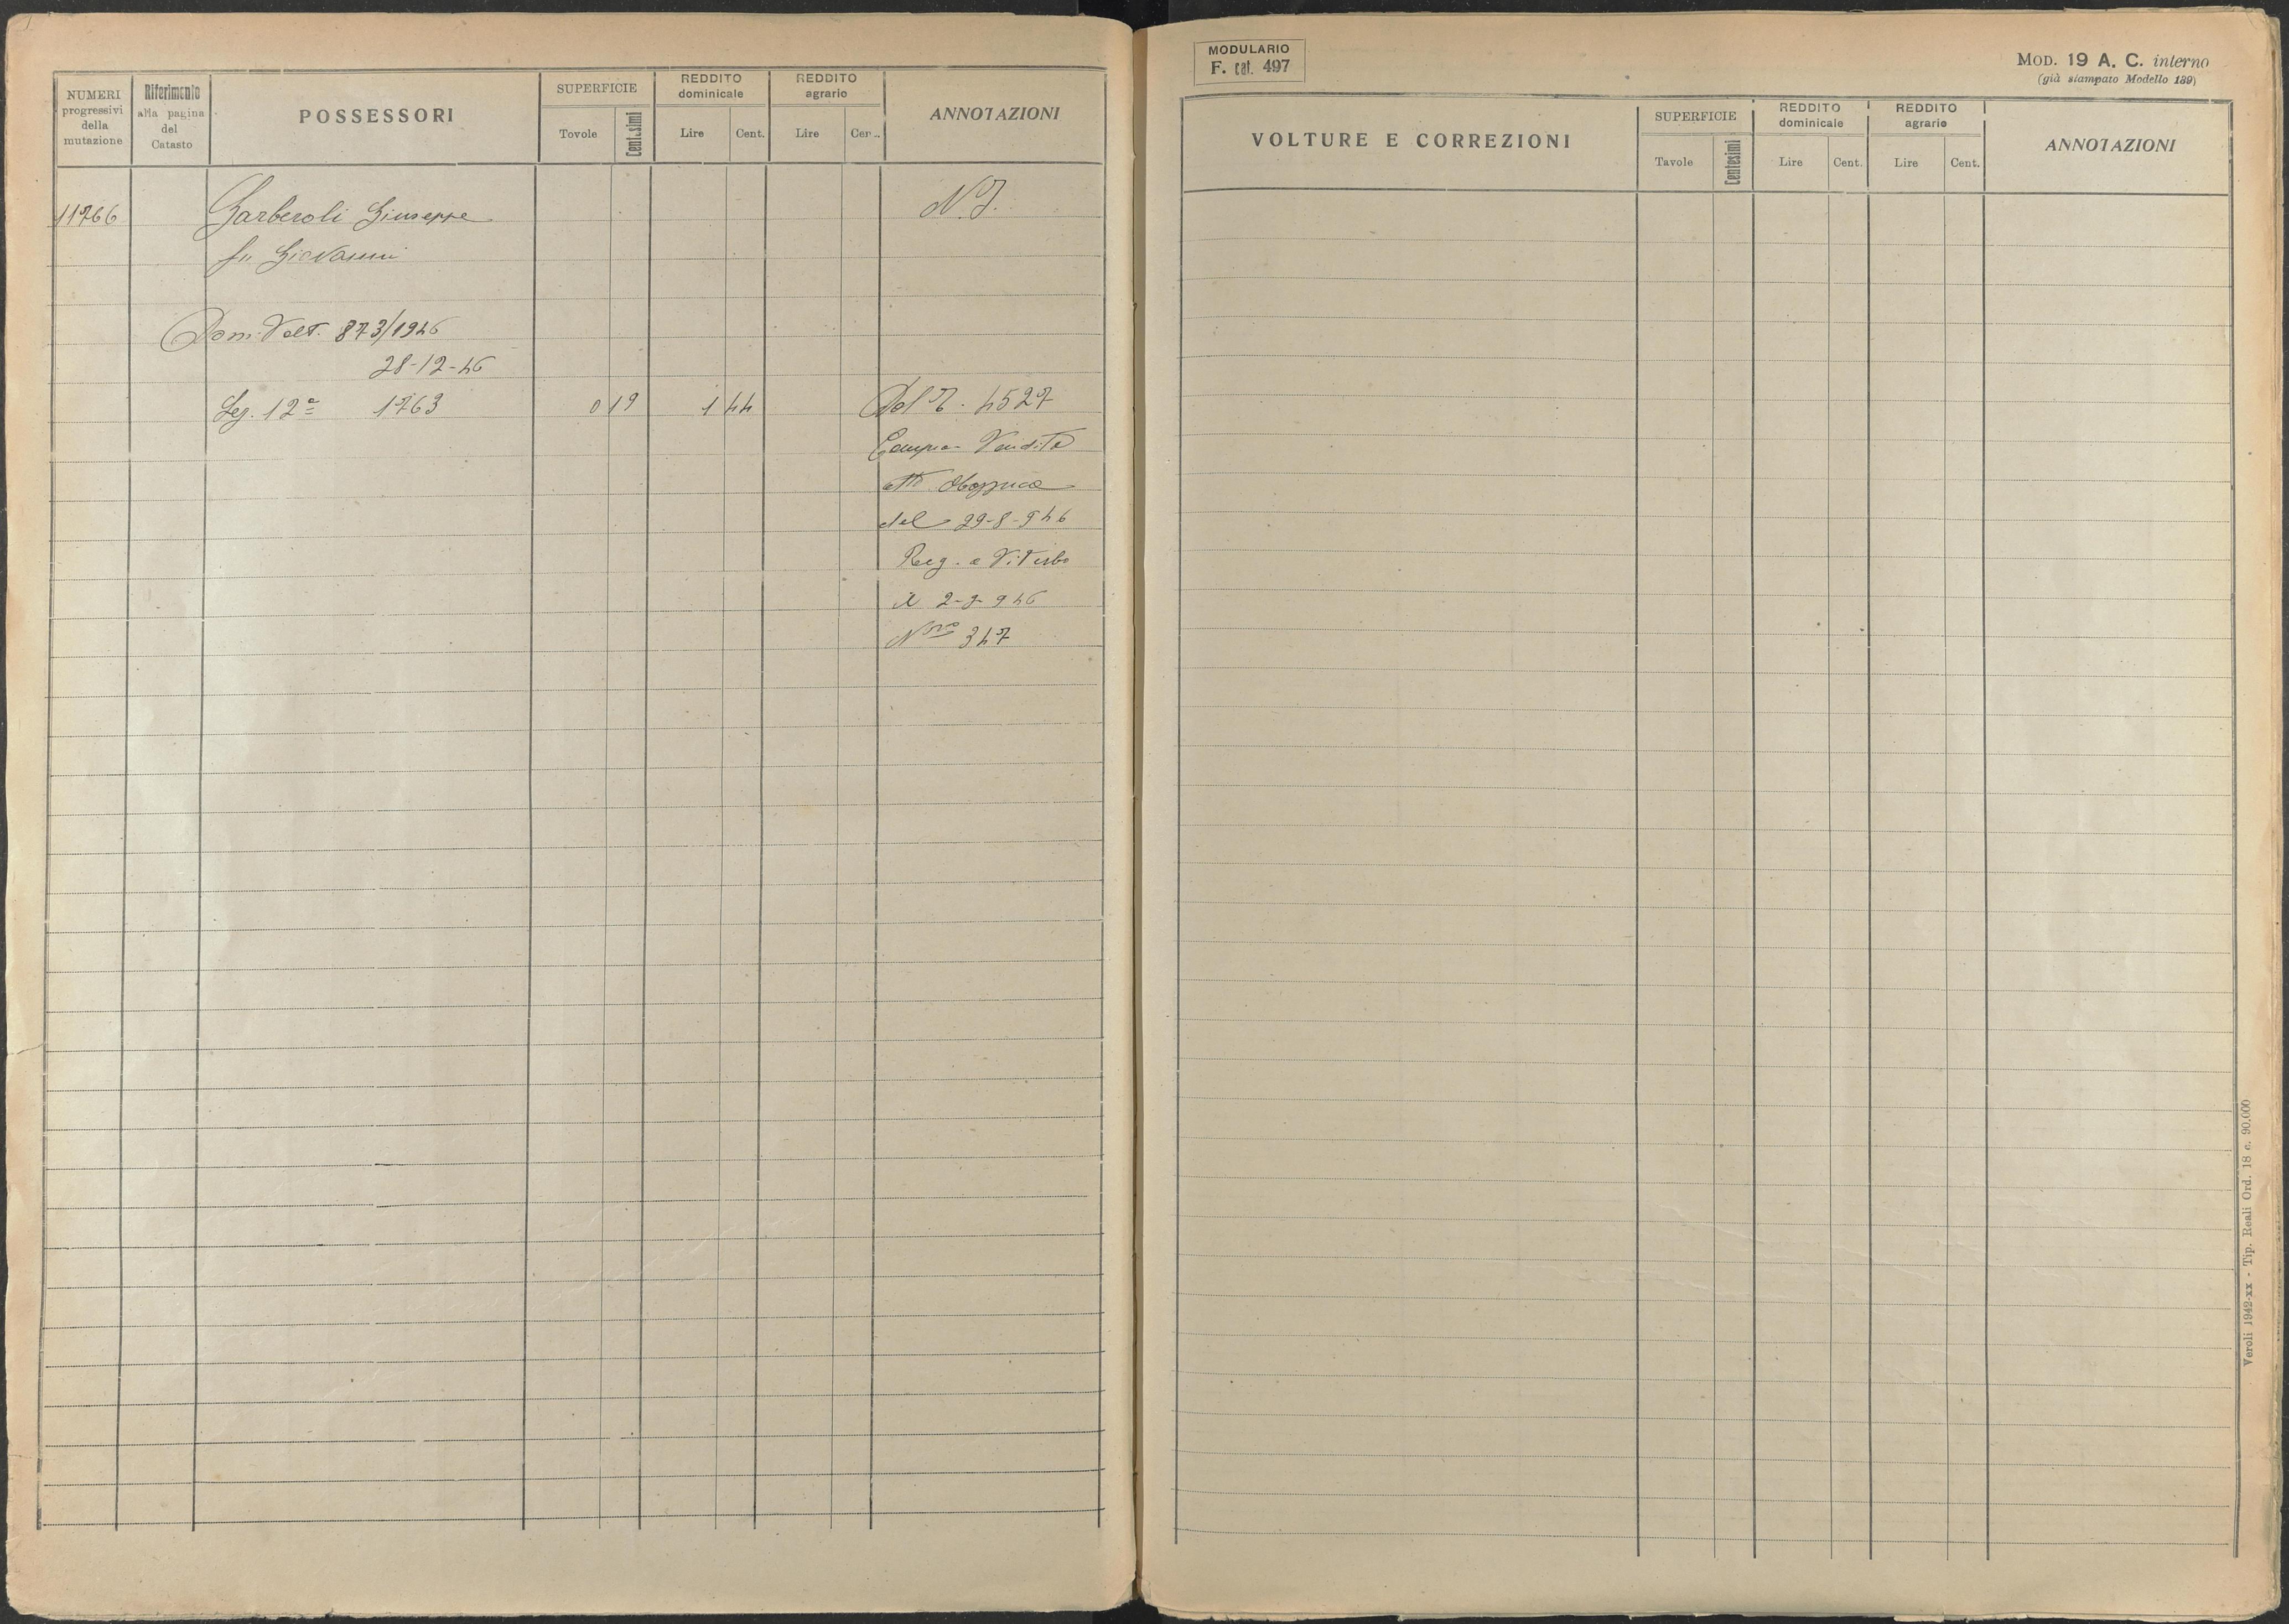 NUMERI
progressivi
della
mutazione
Riferimento
alla pagina
del
Catasto
POSSESSORI
SUPERFICIE
Tovole
Centesimi
REDDITO
dominicale
Lire
Cent.
REDDITO
agrario
Lire
Cen..
ANNOTAZIONI
11766
Garberoli Giuseppe
fu Giovanni
N.I.
Dom. Volt. 873/1946
28-12-46
Sez. 12ª 1763
0 19
1 44
Dal R. 4527
Compra Vendita
atto
del 29-8-946
Reg. a Viterbo
il 2-9-946
Nro 347
MODULARIO
F. cat. 497
MOD. 19 A. C. interno
(già stampato Modello 189)
VOLTURE E CORREZIONI
SUPERFICIE
Tavole
Centesimi
REDDITO
dominicale
Lire
Cent.
REDDITO
agrario
Lire
Cent.
ANNOTAZIONI
Veroli 1942-XX - Tip. Reali Ord. 18 c. 90.000